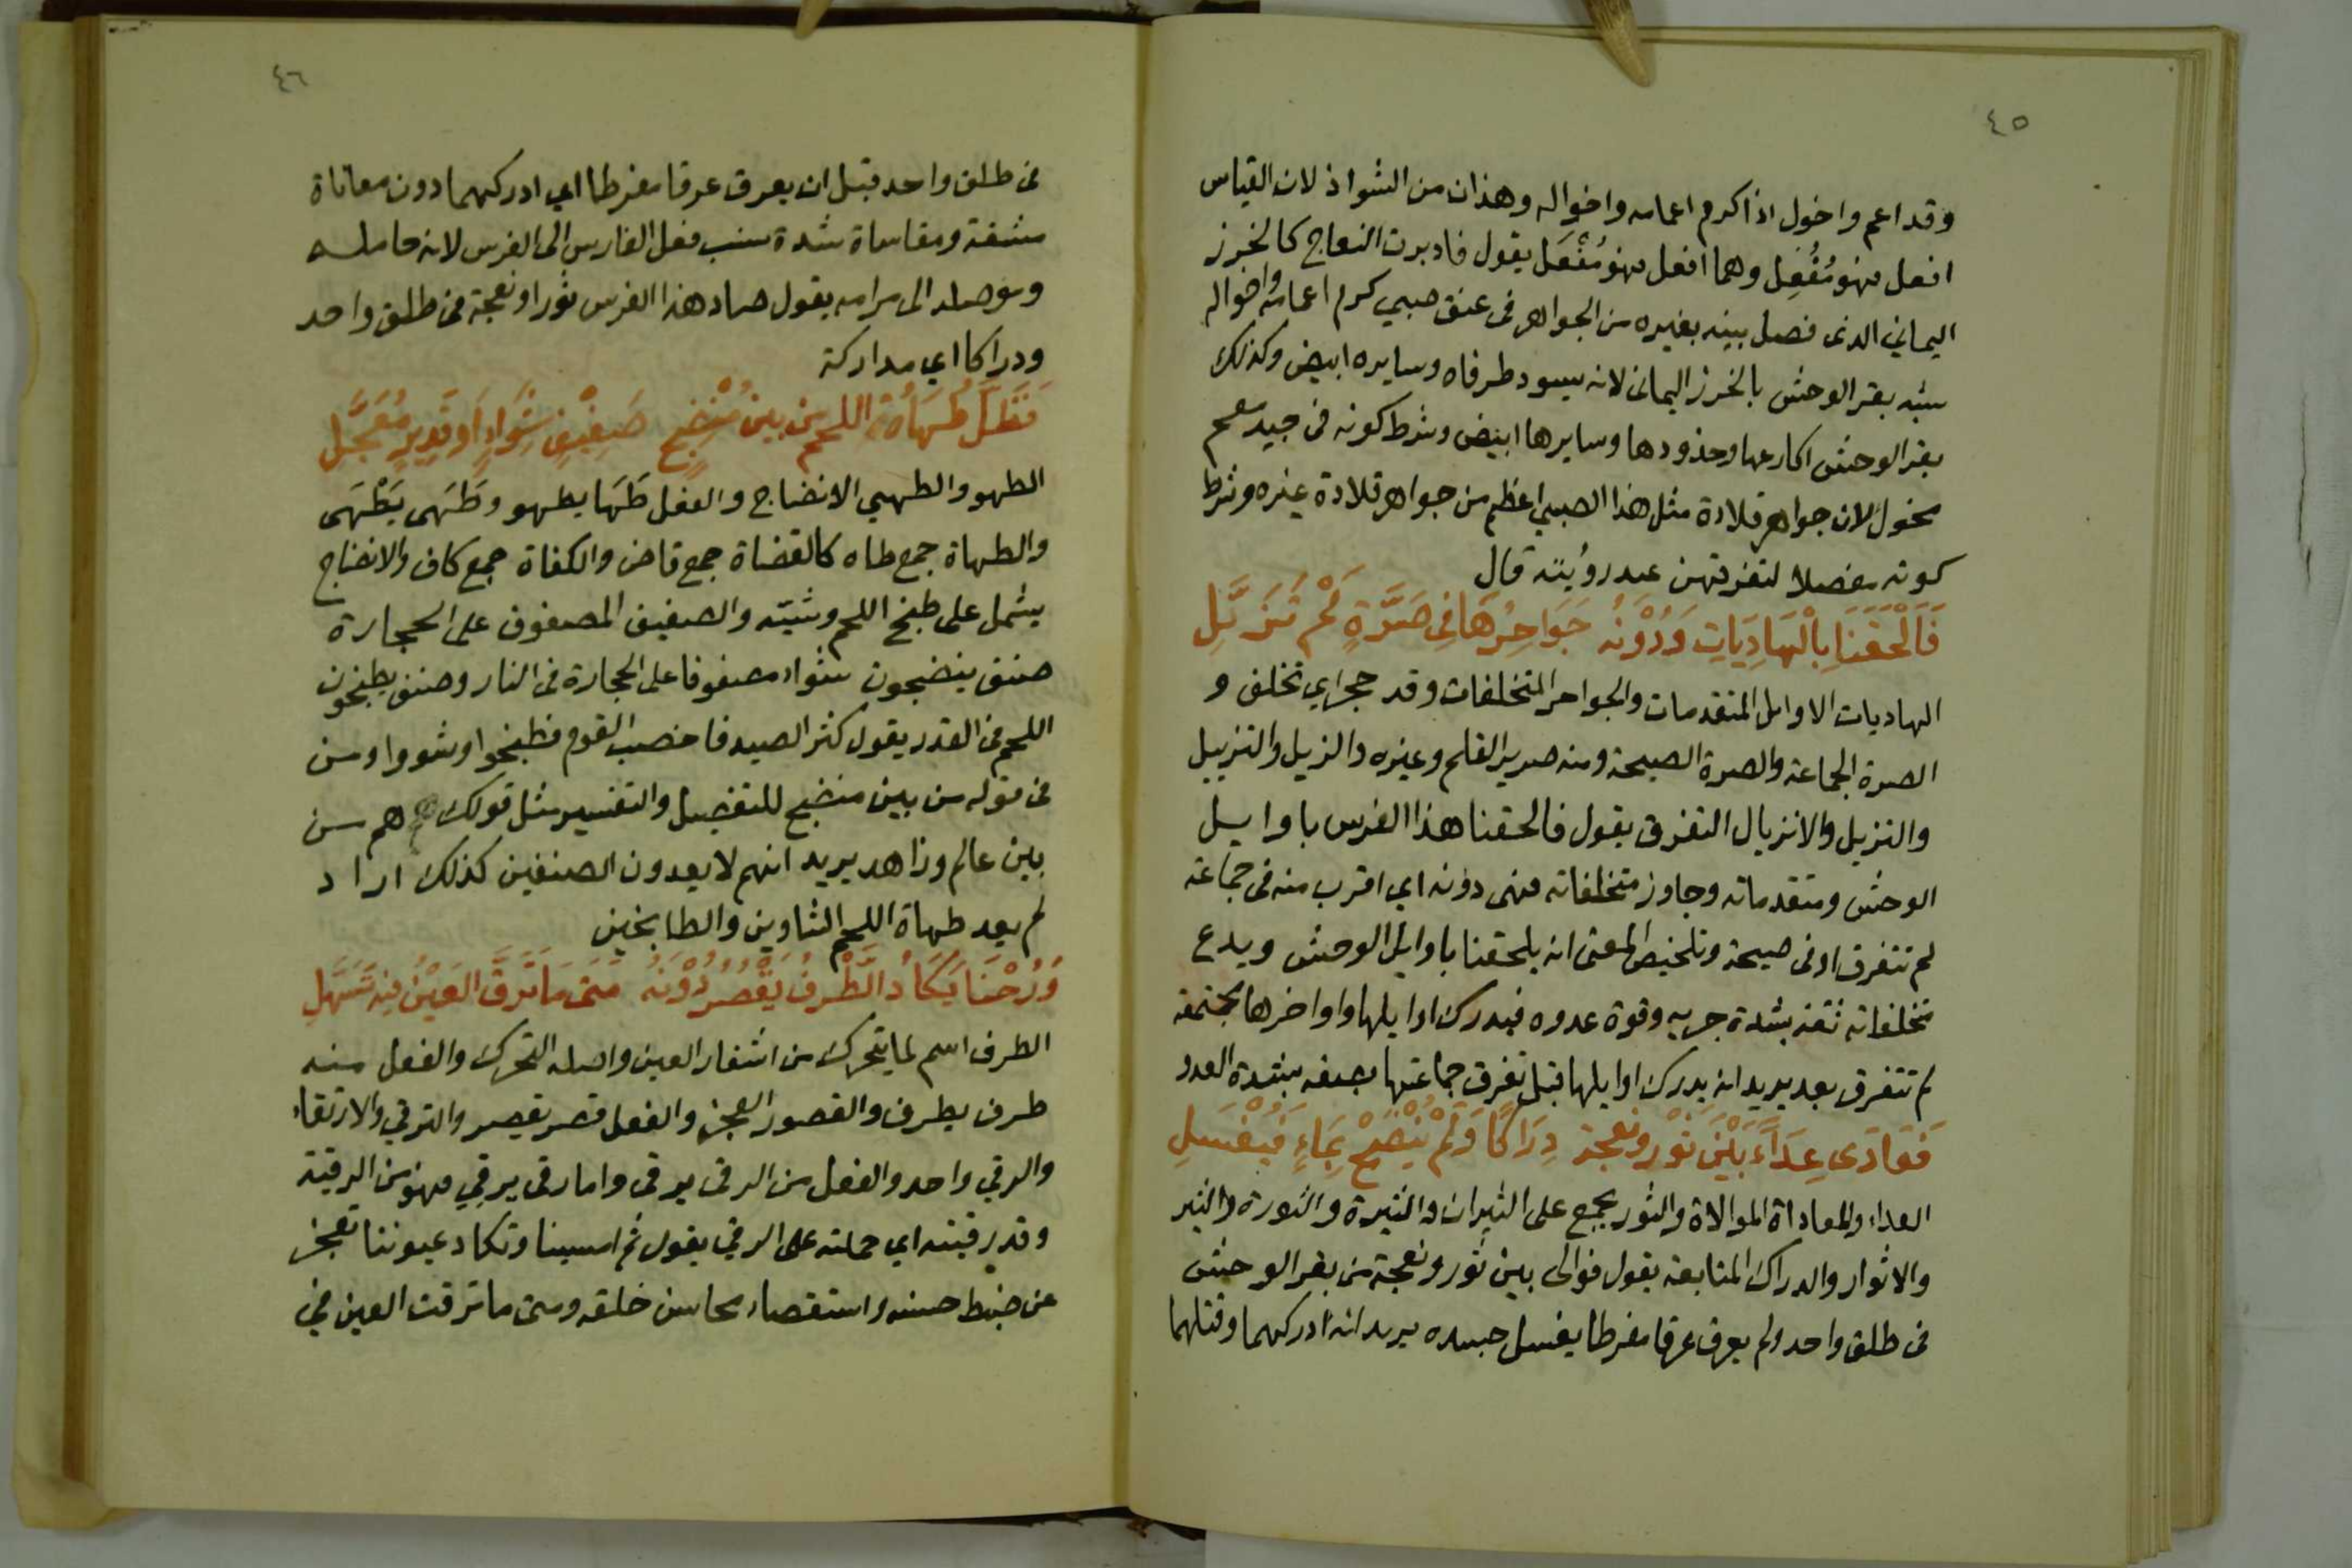 ٤٥
وقد اعم واخول اذا كرم اعمامه واخواله وهذان من الشواذ لان القياس
افعل فهو مُفْعِل وهما افعل فهو مُفْعَل يقول فادبرت النعاج كالخرز
اليماني الذى فصل بينه بغيره من الجواهر فى عنق صبي كرم اعمامه واخواله
شبه بقر الوحش بالخرز اليمانى لانه يسود طرفاه وسايره ابيض وكذلك
بقر الوحش اكارعها وخدودها وسايرها ابيض وشرط كونه فى جيد معم
مخول لان جواهر قلادة مثل هذا الصبي اعظم من جواهر قلادة غيره وشرط
كونه مفصلا لتفرقهن عند رؤيته قال
فَاَلْحَقَنَا بِالْهَادِيَاتِ وَدُوْنَهُ جَوَاحِرُهَا فِى صَرَّةٍ لَمْ تُزَيَّلِ
الهاديات الاوايل المتقدمات والجواحر المتخلفات وقد جحر اي تخلف و
الصرة الجماعة والصرة الصيحة ومنه صرير القلم وغيره والزيل والتزييل
والتزيل والانزيال التفرق يقول فالحقنا هذا الفرس باوايل
الوحش ومتقدماته وجاوز متخلفاته فهى دونه اي اقرب منه فى جماعة
لم تتفرق او فى صيحة وتلخيص المعنى انه يلحقنا باوايل الوحش ويدع
متخلفاته ثقة بشدة جريه وقوة عدوه فيدرك اوايلها واواخرها مجتمعة
لم تتفرق بعد يريد انه يدرك اوايلها قبل تفرق جماعتها يصفه بشدة العدو
فَعَادَى عِدَاءً بَيْنَ ثَوْرٍ ونعجة دِرَاكًا وَلَمْ يُنْضَحْ بِمَاءٍ فَيُغْسَلِ
العداء والمعاداة الموالاة والثور يجمع على الثيران والثيرة والثورة والثير
والاثوار والدراك المتابعة يقول فوالى بين ثور ونعجة من بقر الوحش
فى طلق واحد ولم يعرق عرقا مفرطا يغسل جسده يريد انه ادركهما وقتلهما
٤٦
فى طلق واحد قبل ان يعرق عرقا مفرطا اي ادركهما دون معاناة
مشقة ومقاساة شدة نسب فعل الفارس الى الفرس لانه حامله
وموصله الى مرامه يقول صاد هذا الفرس ثورا ونعجة فى طلق واحد
ودراكا اي مداركة
فَظَلَّ طُهَاةُ اللحم من بين مُنْضِجٍ صَفِيْفِ شِوَاءٍ اَو قَدِيرٍ مُعَجَّلِ
الطهو والطهي الانضاج والفعل طَهَا يطهو وطَهَى يَطْهَى
والطهاة جمع طاه كالقضاة جمع قاض والكفاة جمع كاف والانضاج
يشمل على طبخ اللحم وشيّه والصفيف المصفوف على الحجارة
صنف ينضجون شواء مصفوفا على الحجارة فى النار وصنف يطبخون
اللحم فى القدر يقول كثر الصيد فاخصب القوم فطبخوا وشووا ومن
فى قوله من بين منضج للتفصيل والتفسير مثل قولك هم من
بين عالم وزاهد يريد انهم لا يعدون الصنفين كذلك اراد
لم يعد طهاة اللحم الشاوين والطابخين
وَرُحْنَا يَكَادُ الطَّرْفُ يَقْصُرُ دُوْنَهُ مَتَى مَا تَرَقَّ العَيْنُ فِيْهِ تَسَهَّلِ
الطرف اسم لما يتحرك من اشفار العين واصله التحرك والفعل منه
طرف يطرف والقصور العجز والفعل قصر يقصر والترقي والارتقاء
والرقي واحد والفعل من الرقى يرقى واما رقى يرقي فهو من الرقية
وقد رقيته اي حملته على الرقي يقول ثم امسينا وتكاد عيوننا تعجز
عن ضبط حسنه واستقصاء محاسن خلقه ومتى ما ترقت العين في